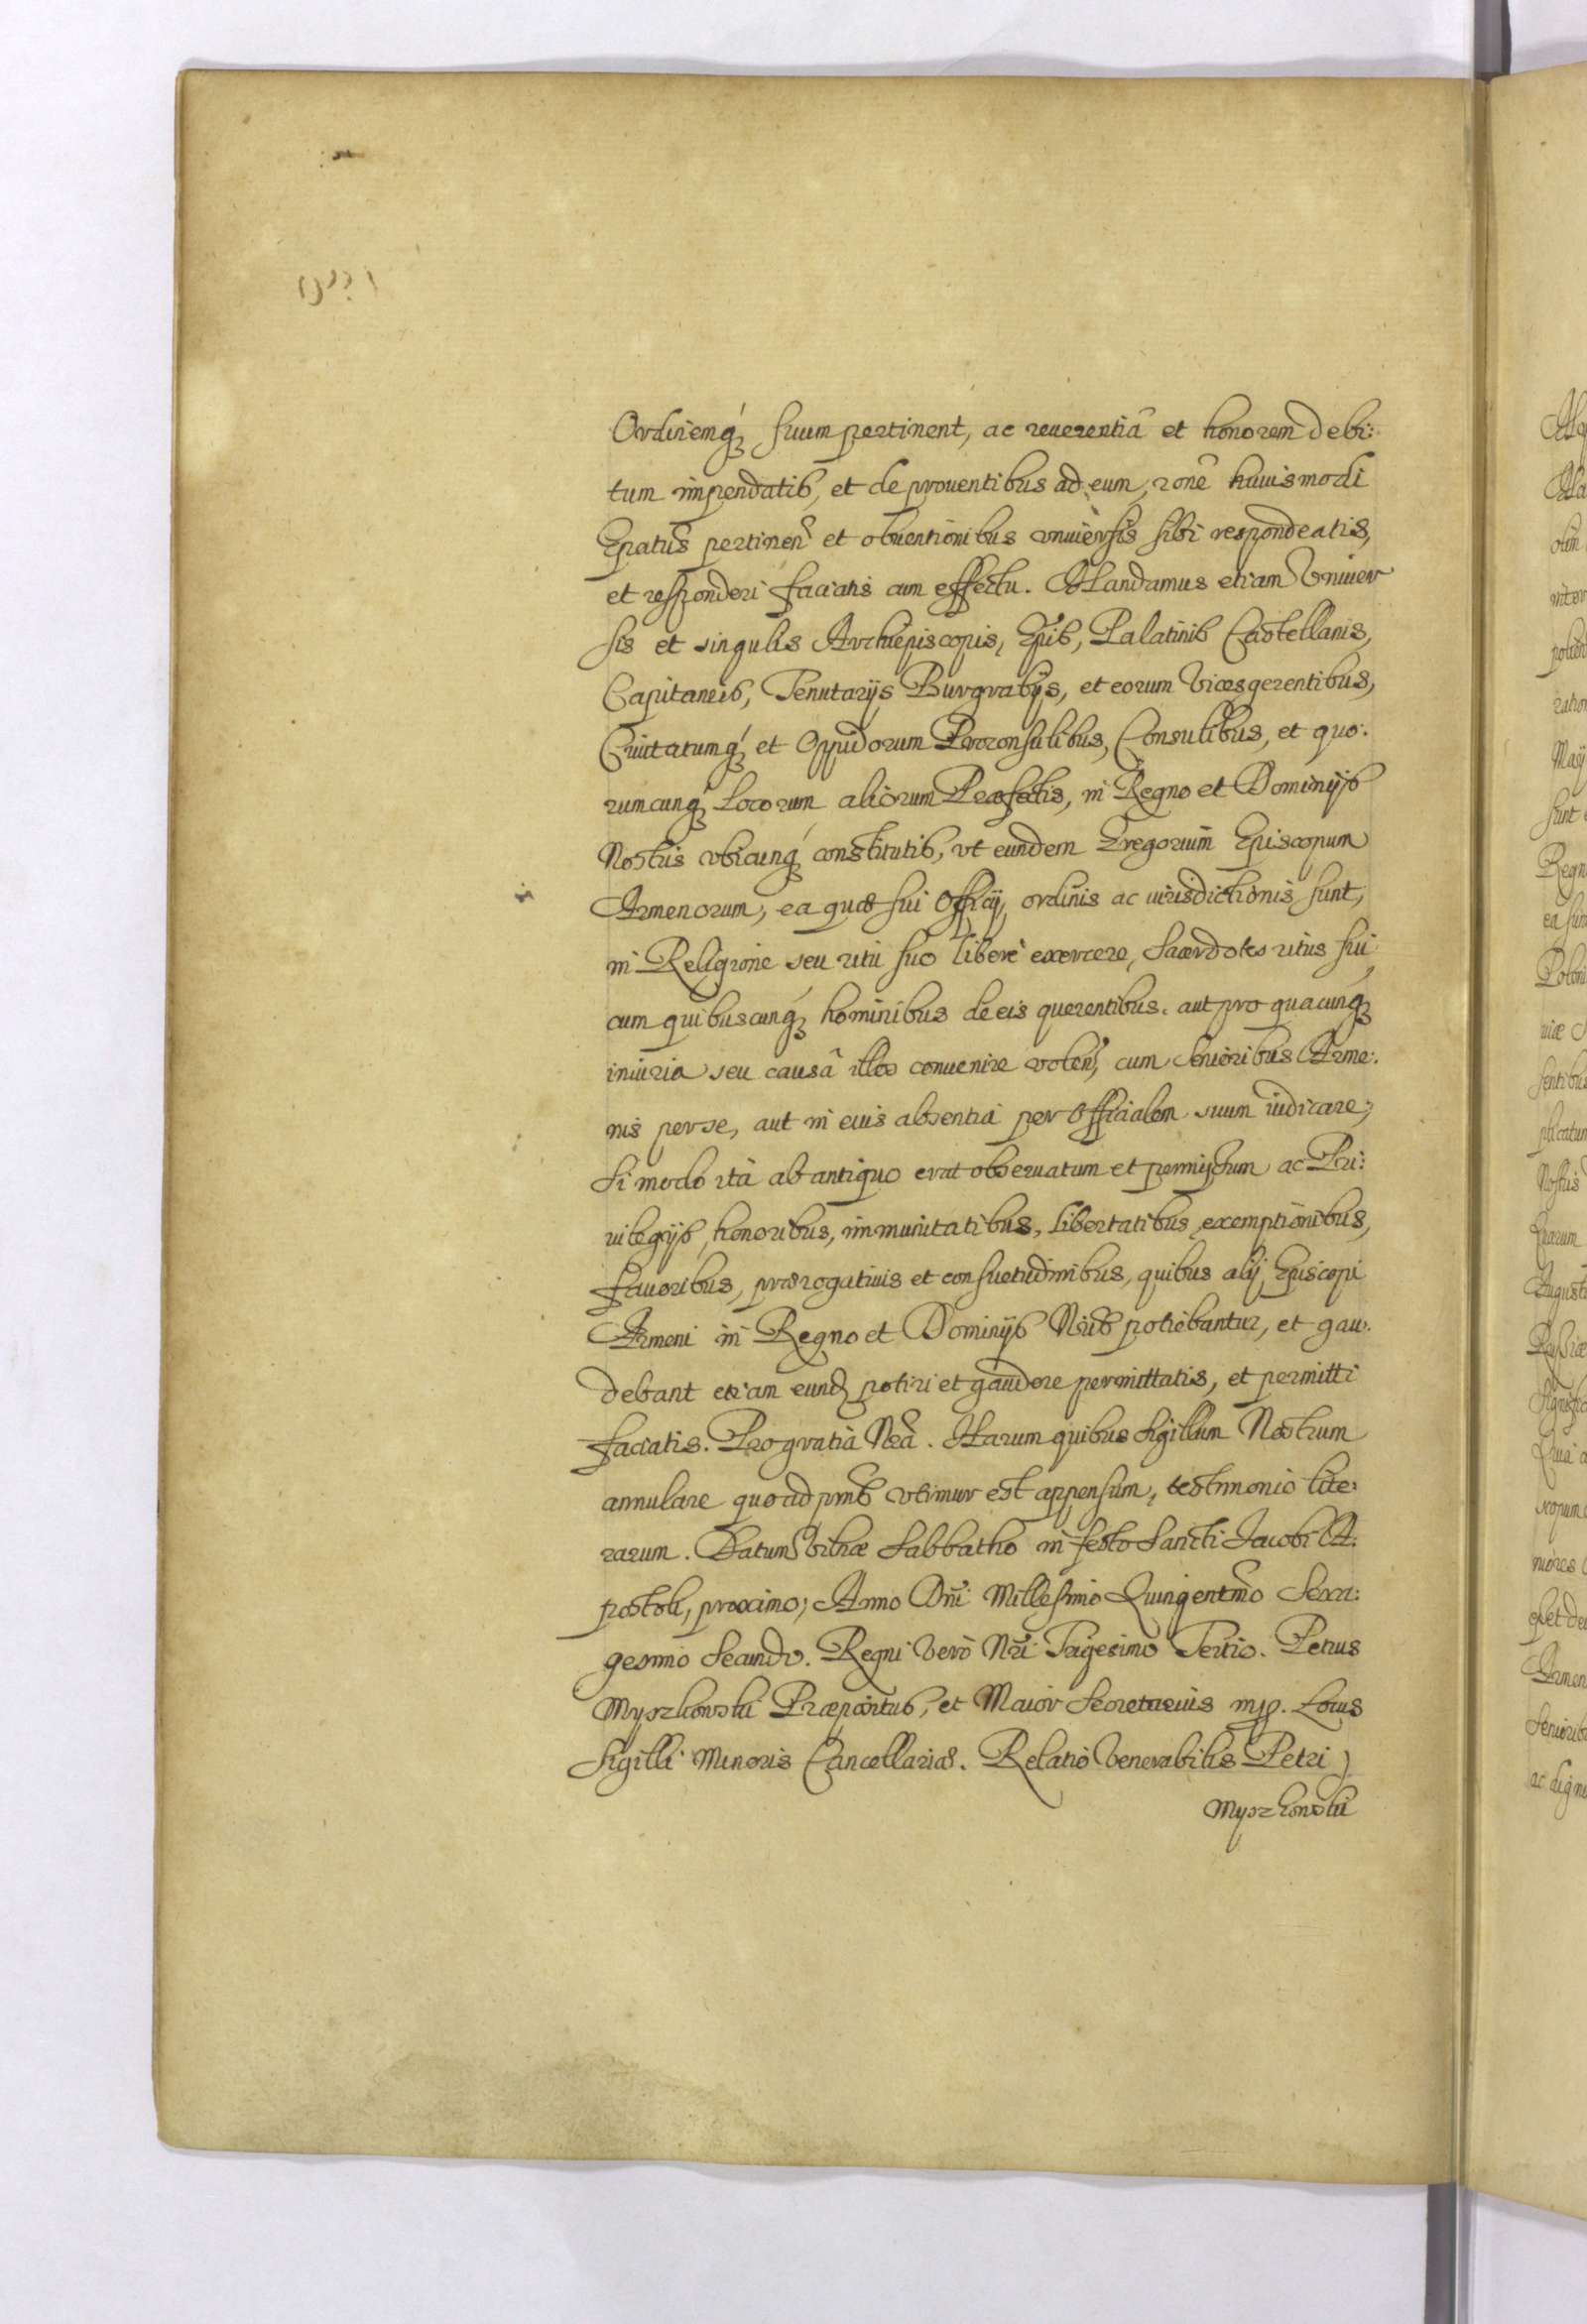 Ordinemq́ꝫ suum pertinent, ac reuerentiã et honorem debi:
tum impendatis, et de prouentibus ad eum, rone̅ huiusmodi
Epatus̃ pertinen̄ et obuentionibus vniuersis sibi respondeatis,
et responderi faciatis cum effectu. Mandamus etiam Vniuer
sis et singulis Archiepiscopis, Ep̃is, Palatinis Castellanis,
Capitaneis, Tenutarijs Burgrabijs, et eorum Vicesgerentibus,
Ciuitatumq́ꝫ et Oppidorum Proconsulibus, Consulibus, et quo:
rumcunq́ꝫ Locorum aliorum Præfectis, in Regno et Dominijs
Nostris vbicunq́ꝫ constitutis, vt eundem Gregorium Episcopum
Armenorum, ea quæ sui Officij, ordinis ac iurisdictionis sunt,
in Religione seu ritu suo liberè exercere, Sacerdotes ritus sui
cum quibuscunq́ꝫ hominibus de eis querentibus. aut pro quacunq́ꝫ
iniuria seu causâ illos conuenire volen̄, cum Senioribus Arme:
nis per se, aut in eius absentia per Officialem suum iudicare,
si modo ita ab antiquo erat obseruatum et permissum ac Pri:
uilegijs, honoribus, immunitatibus, libertatibus, exemptionibus,
fauoribus, prærogatiuis et consuetudinibus, quibus alij Episcopi
Armeni in Regno et Dominijs Nr̃is potiebantur, et gau:
debant etiam eundꝫ potiri et gaudere permittatis, et permitti
faciatis. Pro gratia Nr̃a. Harum quibus Sigillum Nostrum
annulare quo ad pñs vtimur est appensum, testimonio lite:
rarum. Datum Vilnæ Sabbatho in festo Sancti Jacobi A:
postoli, proximo; Anno Dñi Millesimo Quingentm̃o Sexa:
gesimo Secundo. Regni Verò Nr̃i Trigesimo Tertio. Petrus
Myszkowski Præpositus, et Maior Secretarius mp. Locus
Sigilli Minoris Cancellariæ. Relatio Venerabilis Petri
Myszkowski